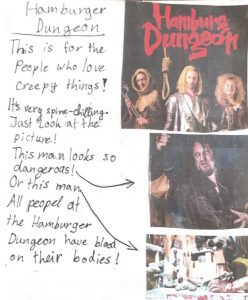 Hamburger
Dungeon
This is for the
People who love
creepy things!
It's very spine-chilling.
Just Look at the
picture!
This man looks so
dangeroas!
Or this man,
All peopel at
the Hamburger
Dungeon have blood
on their bodies!
Hamburg
Dungeon